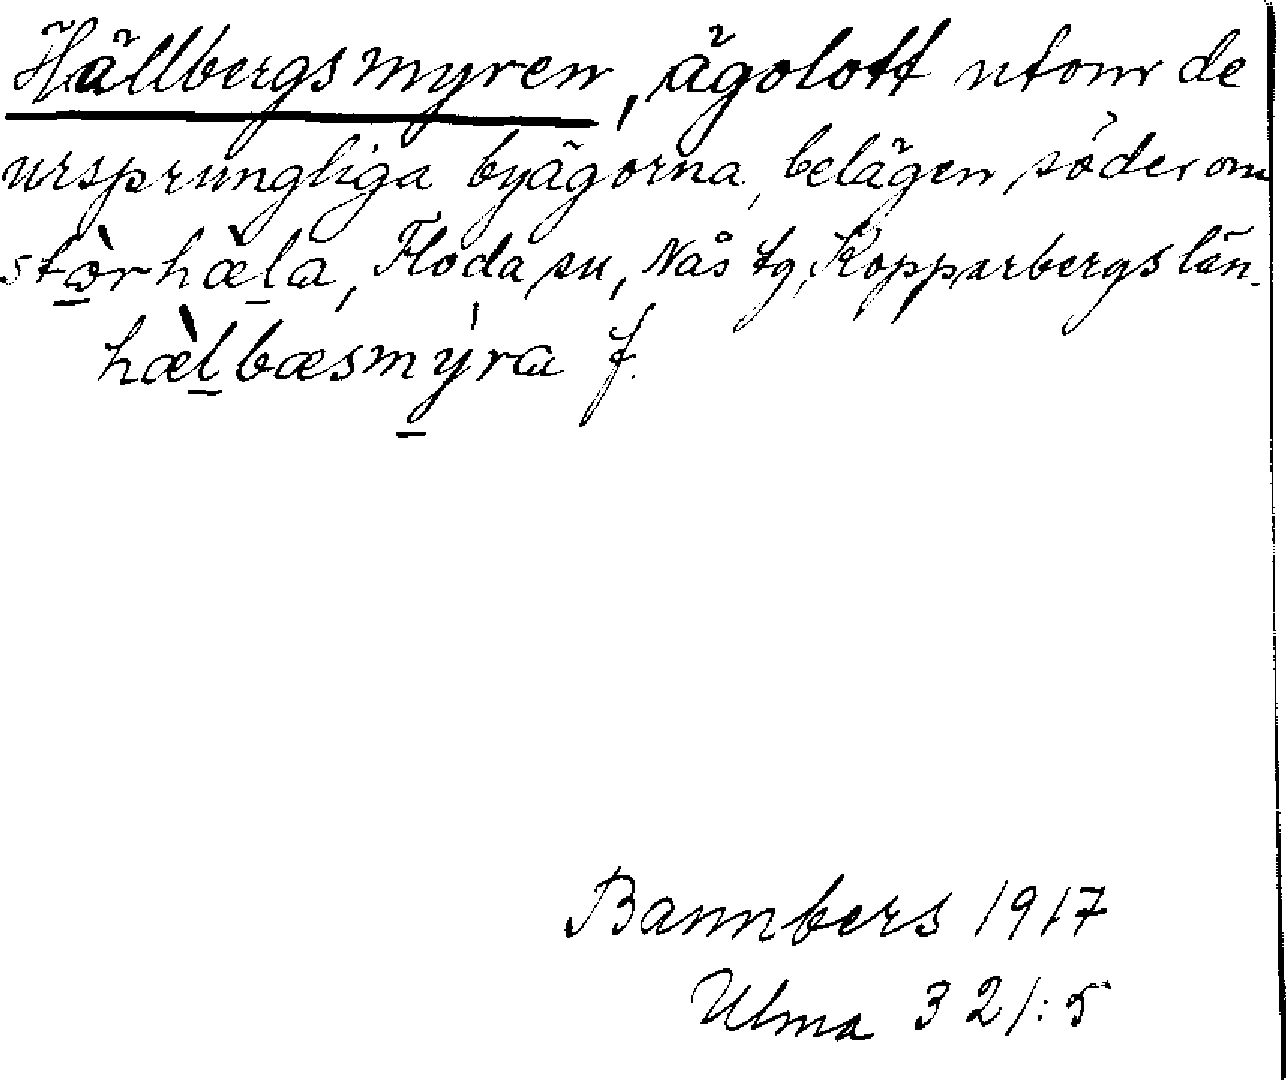 Hällbergsmyren, ägolott utom de
ursprungliga byägorna, belägen söder om
stòrhæ̀la, Floda sn, Nås tg, Kopparbergs län.
hæ̀lbæsmýra f.
Bannbers 1917
Ulma 321:5